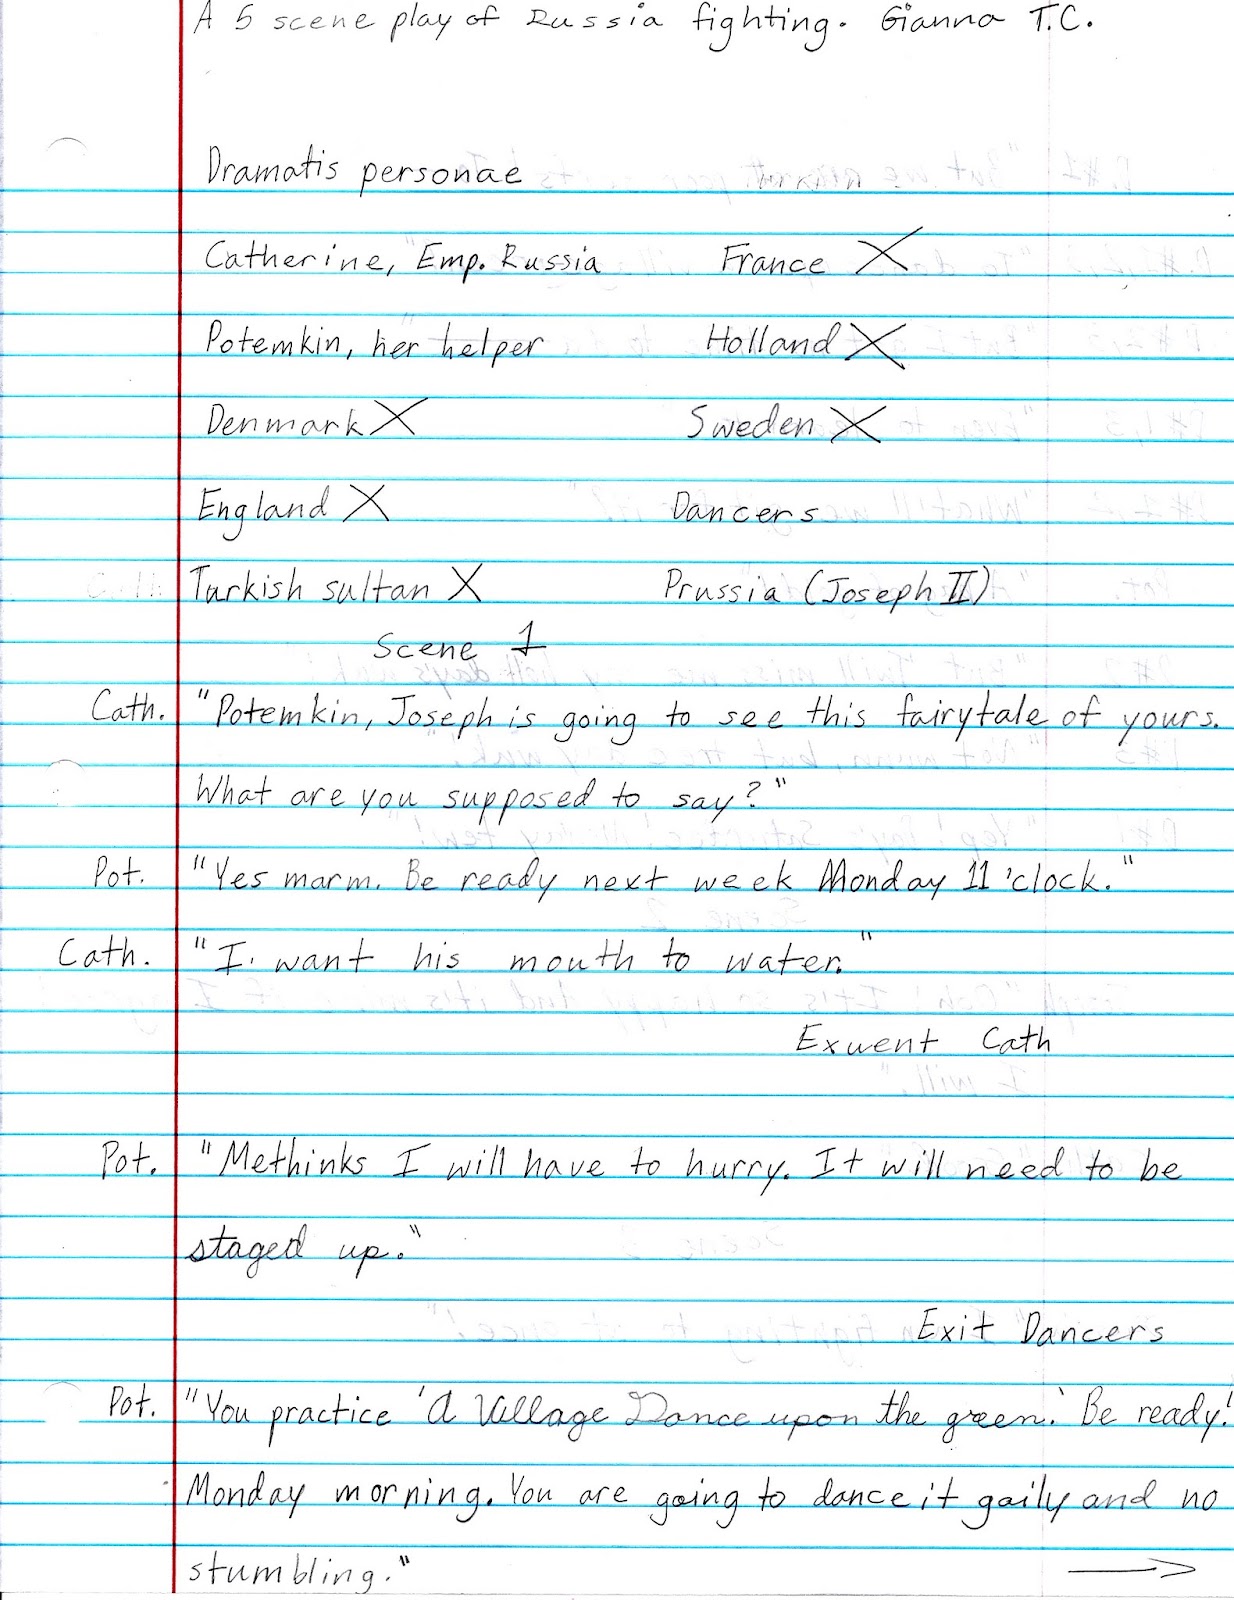 A 5 scene play of Russia fighting. Gianna T.C.
Dramatis personae
Catherine, Emp. Russia France X
Potemkin, her helper Holland X
Denmark X Sweden X
England X Dancers
Turkish sultan X Prussia (Joseph II)
Scene 1
Cath. "Potemkin, Joseph is going to see this fairytale of yours.
What are you supposed to say?"
Pot. "Yes marm. Be ready next week Monday 11 'clock."
Cath. "I want his mouth to water."
Exuent Cath
Pot. "Methinks I will have to hurry. It will need to be
staged up."
Exit Dancers
Pot. "You practice 'A Village Dance upon the green.' Be ready!
Monday morning. You are going to dance it gaily and no
stumbling."